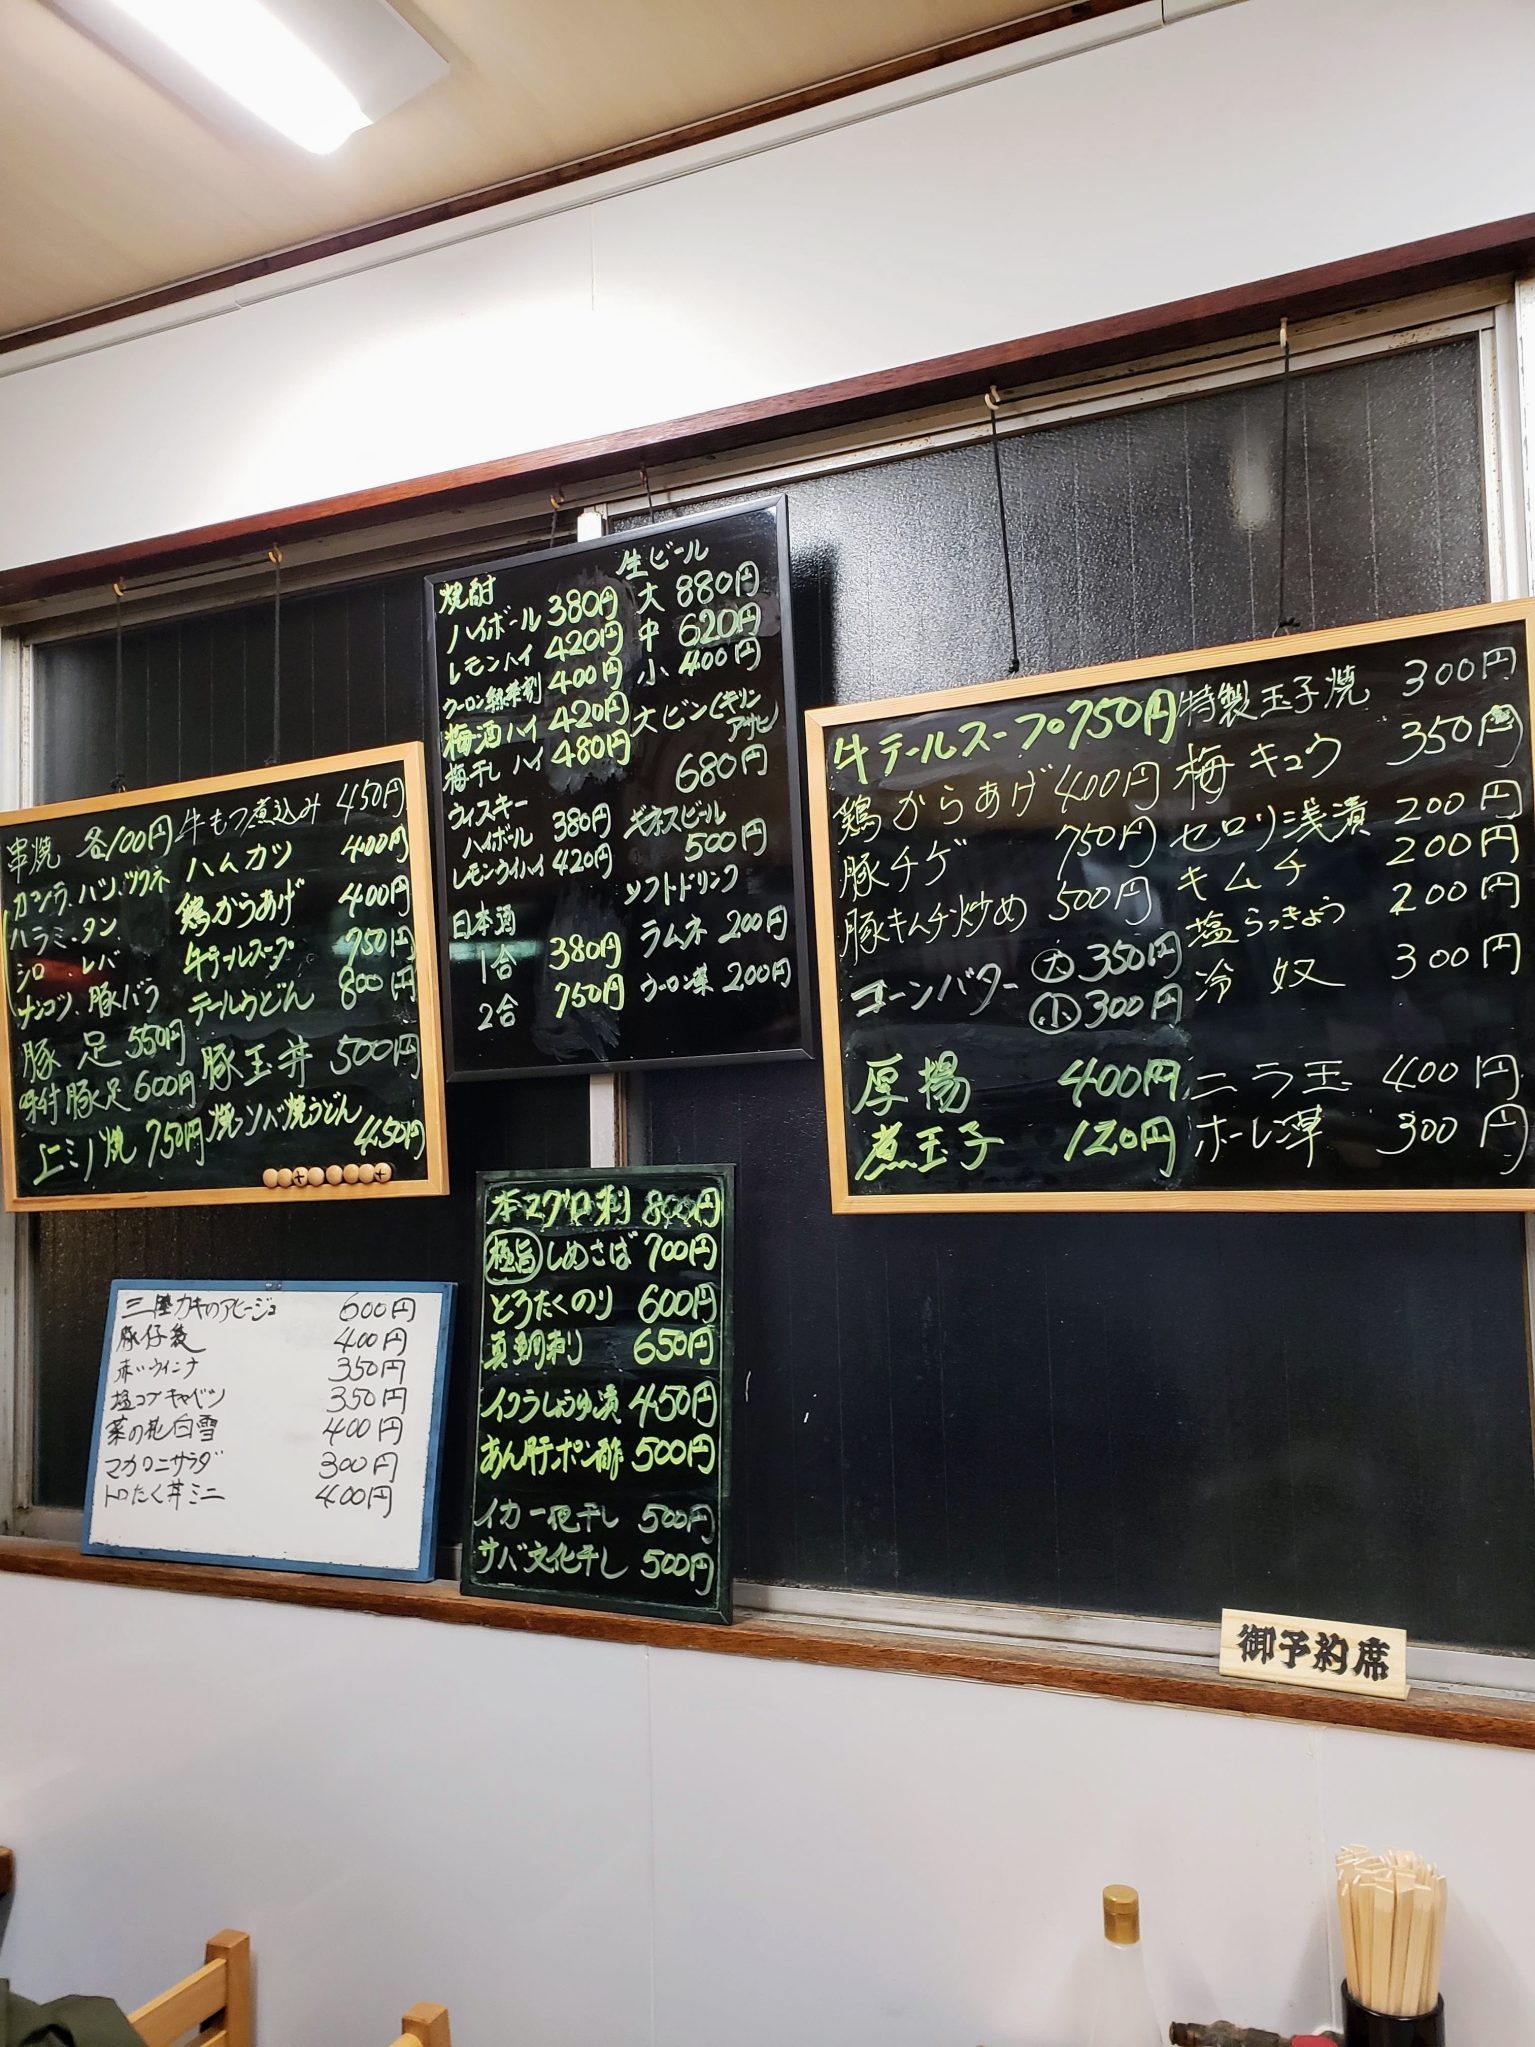 串焼 各100円
カシラ、ハツ、ツクネ
ハラミ、タン
シロ、レバ
ナンコツ、豚バラ
豚足 550円
味付豚足 600円
上ミノ焼 750円
牛もつ煮込み 450円
ハムカツ 400円
鶏からあげ 400円
牛テールスープ 750円
テールうどん 800円
豚玉丼 500円
焼ソバ焼うどん 450円
焼酎
ハイボール 380円
レモンハイ 420円
ウーロン緑茶割 400円
梅酒ハイ 420円
梅干しハイ 480円
ウィスキー
ハイボール 380円
レモンウイハイ 420円
日本酒
1合 380円
2合 750円
生ビール
大 880円
中 620円
小 400円
大ビン(キリン
アサヒ)
680円
ギネスビール
500円
ソフトドリンク
ラムネ 200円
ウーロン茶 200円
牛テールスープ 750円
鶏からあげ 400円
豚チゲ 750円
豚キムチ炒め 500円
コーンバター 大 350円
小 300円
厚揚 400円
煮玉子 120円
特製玉子焼 300円
梅キュウ 350円
セロリ浅漬 200円
キムチ 200円
塩らっきょう 200円
冷奴 300円
ニラ玉 400円
ホーレン草 300円
三陸カキのアヒージョ 600円
豚仔袋 400円
赤いウィンナ 350円
塩コブキャベツ 350円
菜の花白雪 400円
マカロニサラダ 300円
トロたく丼ミニ 400円
本マグロ刺 800円
極旨 しめさば 700円
とろたくのり 600円
真鯛刺 650円
イクラしょうゆ漬 450円
あん肝ポン酢 500円
イカ一夜干し 500円
サバ文化干し 500円
御予約席